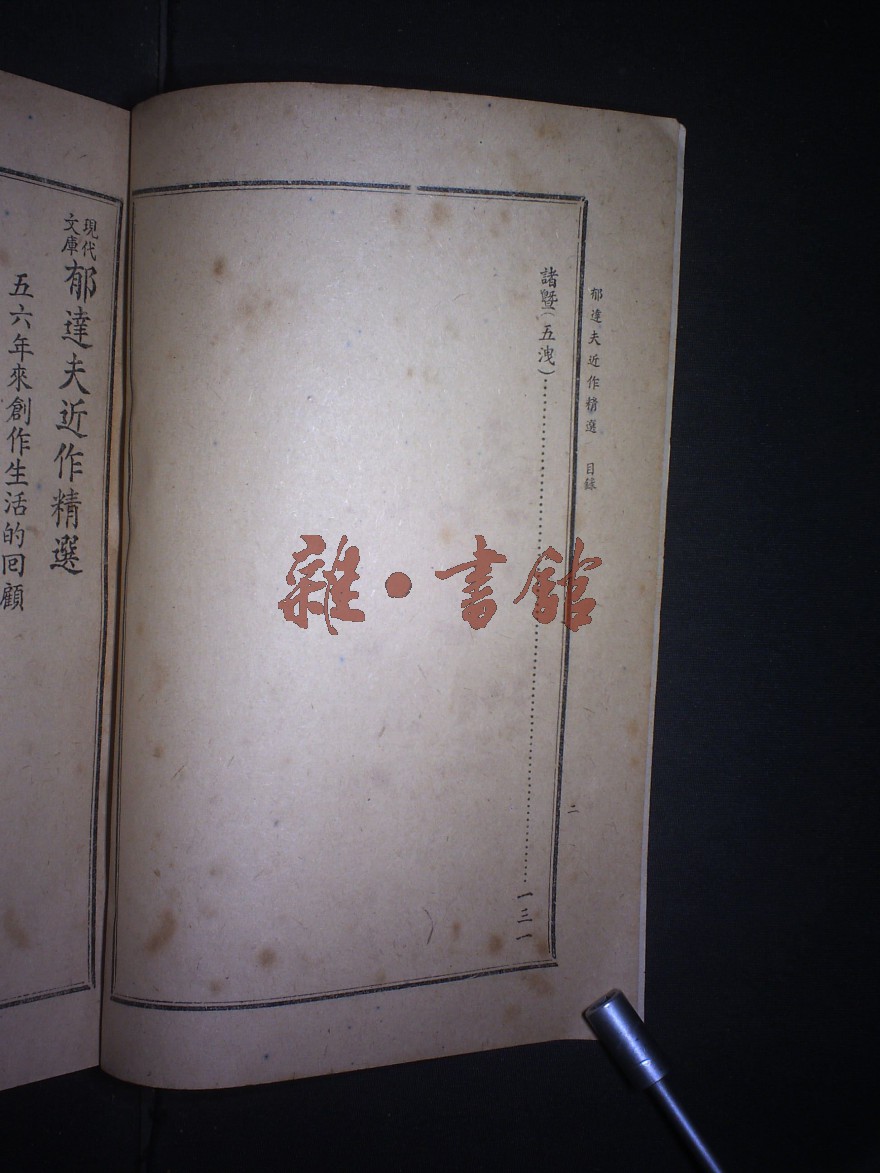 郁達夫近作精選 目錄
諸暨(五洩)……一三一
二
現代文庫 郁達夫近作精選
五六年來創作生活的回顧
雜·書館